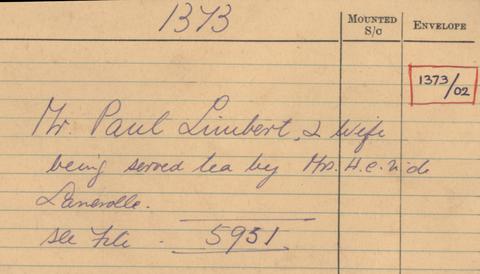 1373
MOUNTED S/C
ENVELOPE
1373/02
Mr. Paul Limbert, & Wife
being served tea by Mrs. H.C.N. de
Lanerolle.
See File - 5951.